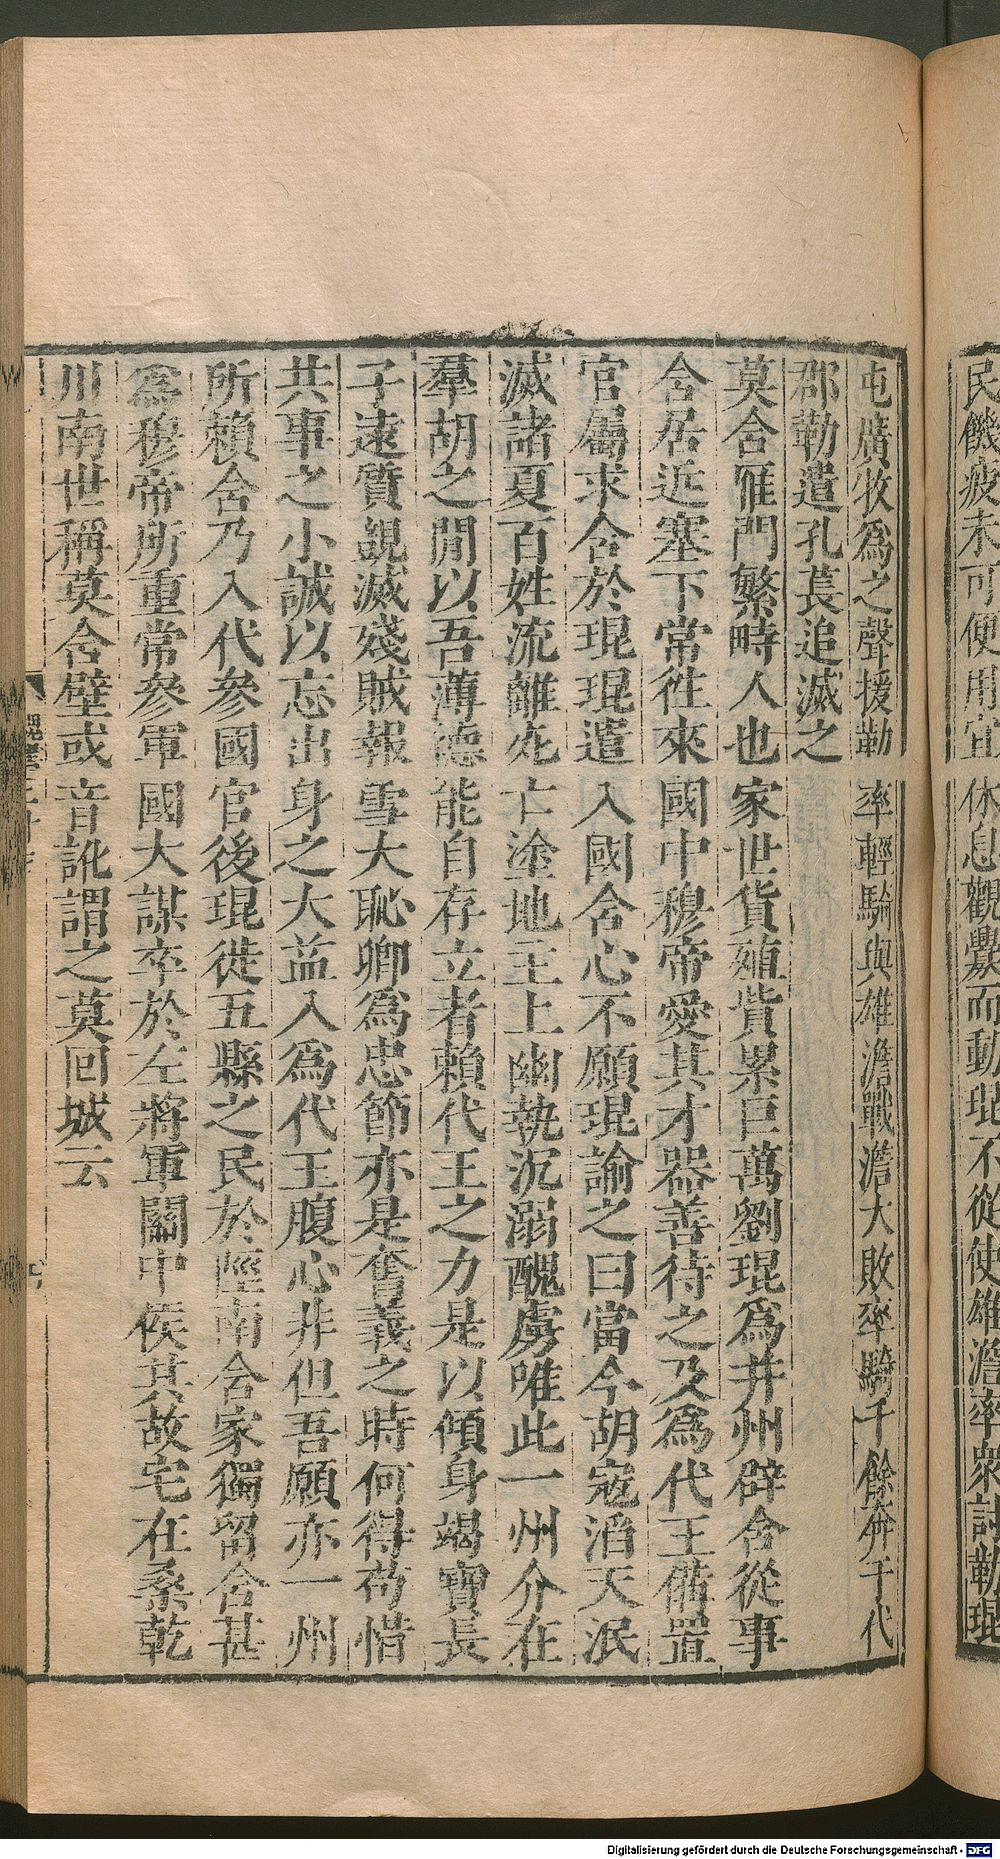 民饑疲未可便用宜休息觀釁而動琨不從使雄澹率衆討勒琨
屯廣牧爲之聲援勒率輕騎與雄澹戰澹大敗率騎千餘奔于代
郡勒遣孔萇追滅之
莫含雁門繁畤人也家世貨殖貲累巨萬劉琨爲并州辟含從事
含居近塞下常徃來國中穆帝愛其才器善待之及爲代王備置
官屬求含於琨琨遣入國含心不願琨諭之曰當今胡寇滔天泯
滅諸夏百姓流離死亡塗地主上幽執沉溺醜虜唯此一州介在
羣胡之閒以吾薄德能自存立者賴代王之力是以傾身竭寶長
子遠質覬滅殘賊報雪大恥卿爲忠節亦是奮義之時何得苟惜
共事之小誠以忘出身之大益入爲代王腹心非但吾願亦一州
所賴含乃入代參國官後琨徙五縣之民於陘南含家獨留含甚
爲穆帝所重常參軍國大謀卒於左將軍關中侯其故宅在桑乾
川南世稱莫含壁或音訛謂之莫回城云
Digitalisierung gefördert durch die Deutsche Forschungsgemeinschaft - DFG